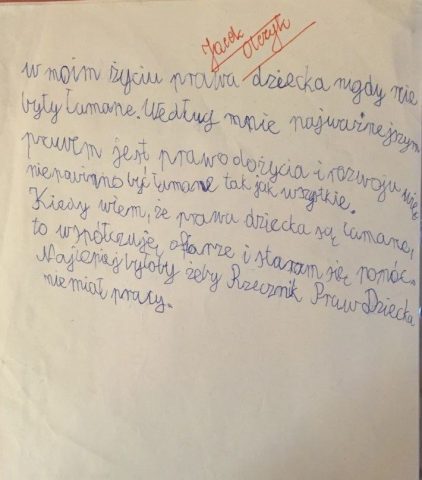 Jacek
Olczyk
w moim życiu prawa dziecka nigdy nie
były łamane. Według mnie najważniejszym
prawem jest prawo do życia i rozwoju więc
niepowinno być łamane tak jak wszystkie.
Kiedy wiem, że prawa dziecka są łamane,
to współczuję ofiarze i staram się pomóc.
Najlepiej byłoby żeby Rzecznik Praw Dziecka
nie miał pracy.